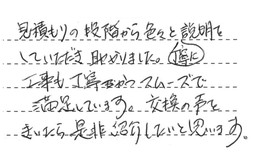 見積もりの段階から色々と説明を
していただき助かりました。丁寧に
工事も丁寧かつスムーズで
満足しています。交換の声を
きいたら是非紹介したいと思います。